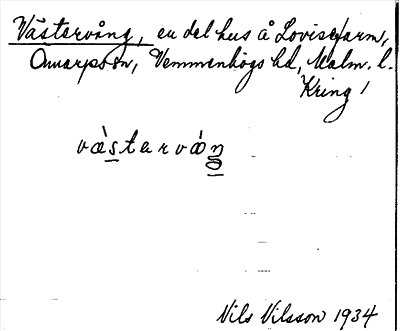 Västervång, en del hus å Lovisefarm,
Anarps sn, Vemmenhögs hd, Malm. l.
Kring
væ̀stərvåŋ
Nils Nilsson 1934